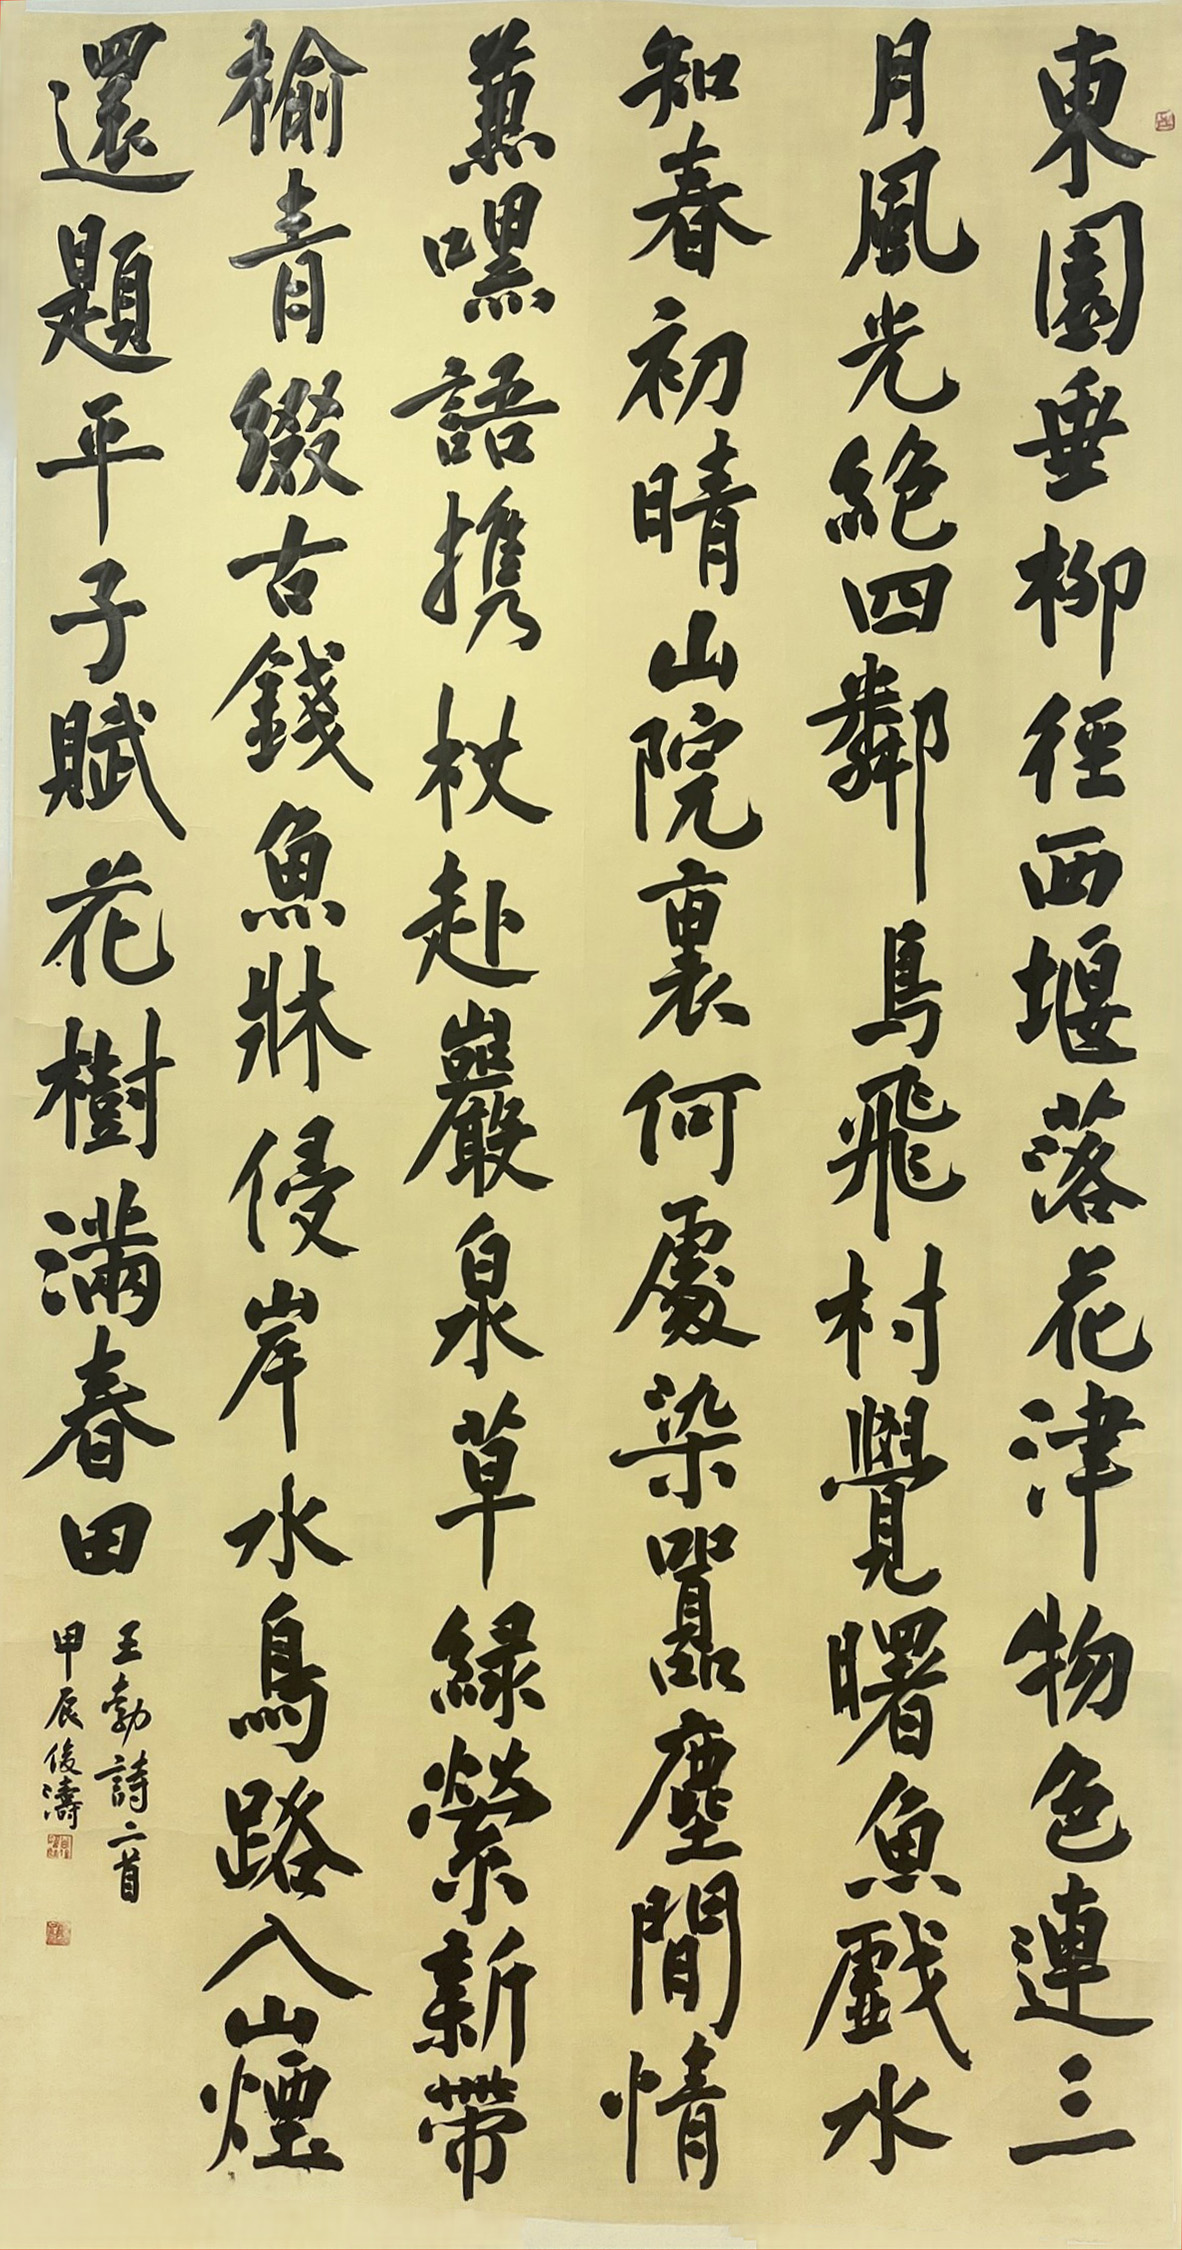 東園垂柳徑西堰落花津物色連三
月風光絕四鄰鳥飛村覺曙魚戲水
知春初晴山院裏何處染囂塵間情
兼嘿語携杖赴巖泉草綠縈新帶
榆青綴古錢魚牀侵岸水鳥路入山煙
還題平子賦花樹滿春田
王勃詩二首
甲辰俊濤